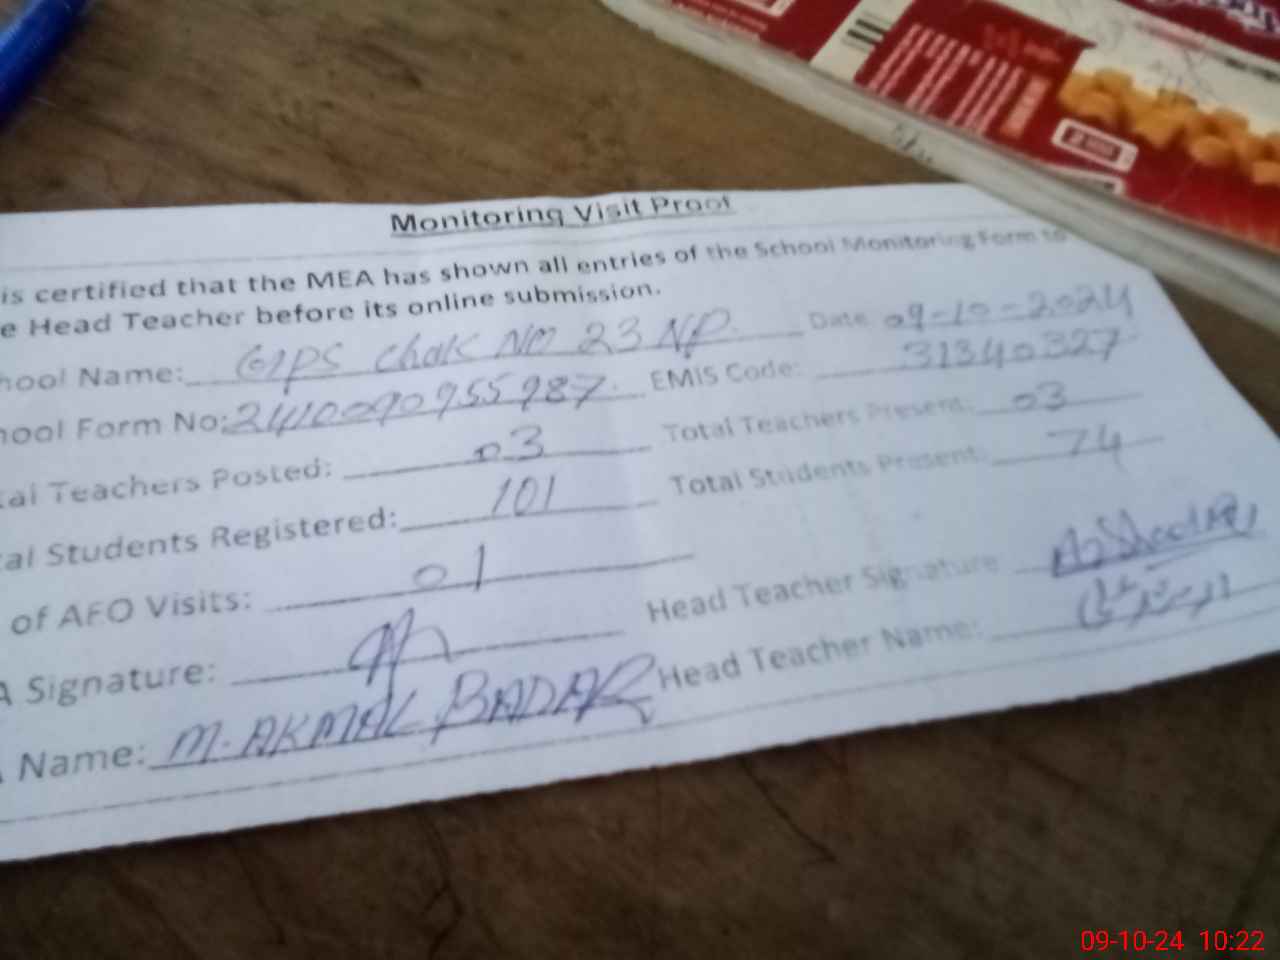 Monitoring Visit Proof
is certified that the MEA has shown all entries of the School Monitoring Form to
e Head Teacher before its online submission.
hool Name: GPS Chak No 23 NP. Date 09-10-2024
hool Form No: 2410090955987. EMIS Code: 31340327
tal Teachers Posted: 03 Total Teachers Present: 03
tal Students Registered: 101 Total Students Present: 74
of AEO Visits: 01
A Signature: Head Teacher Signature
Name: M. AKMAL BADAR Head Teacher Name:
09-10-24 10:22